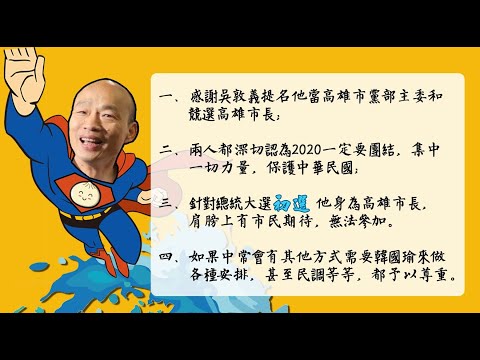 一、感謝吳敦義提名他當高雄市黨部主委和
競選高雄市長；
二、兩人都深切認為2020一定要團結，集中
一切力量，保護中華民國；
三、針對總統大選初選 他身為高雄市長，
肩膀上有市民期待，無法參加。
四、如果中常會有其他方式需要韓國瑜來做
各種安排，甚至民調等等，都予以尊重。